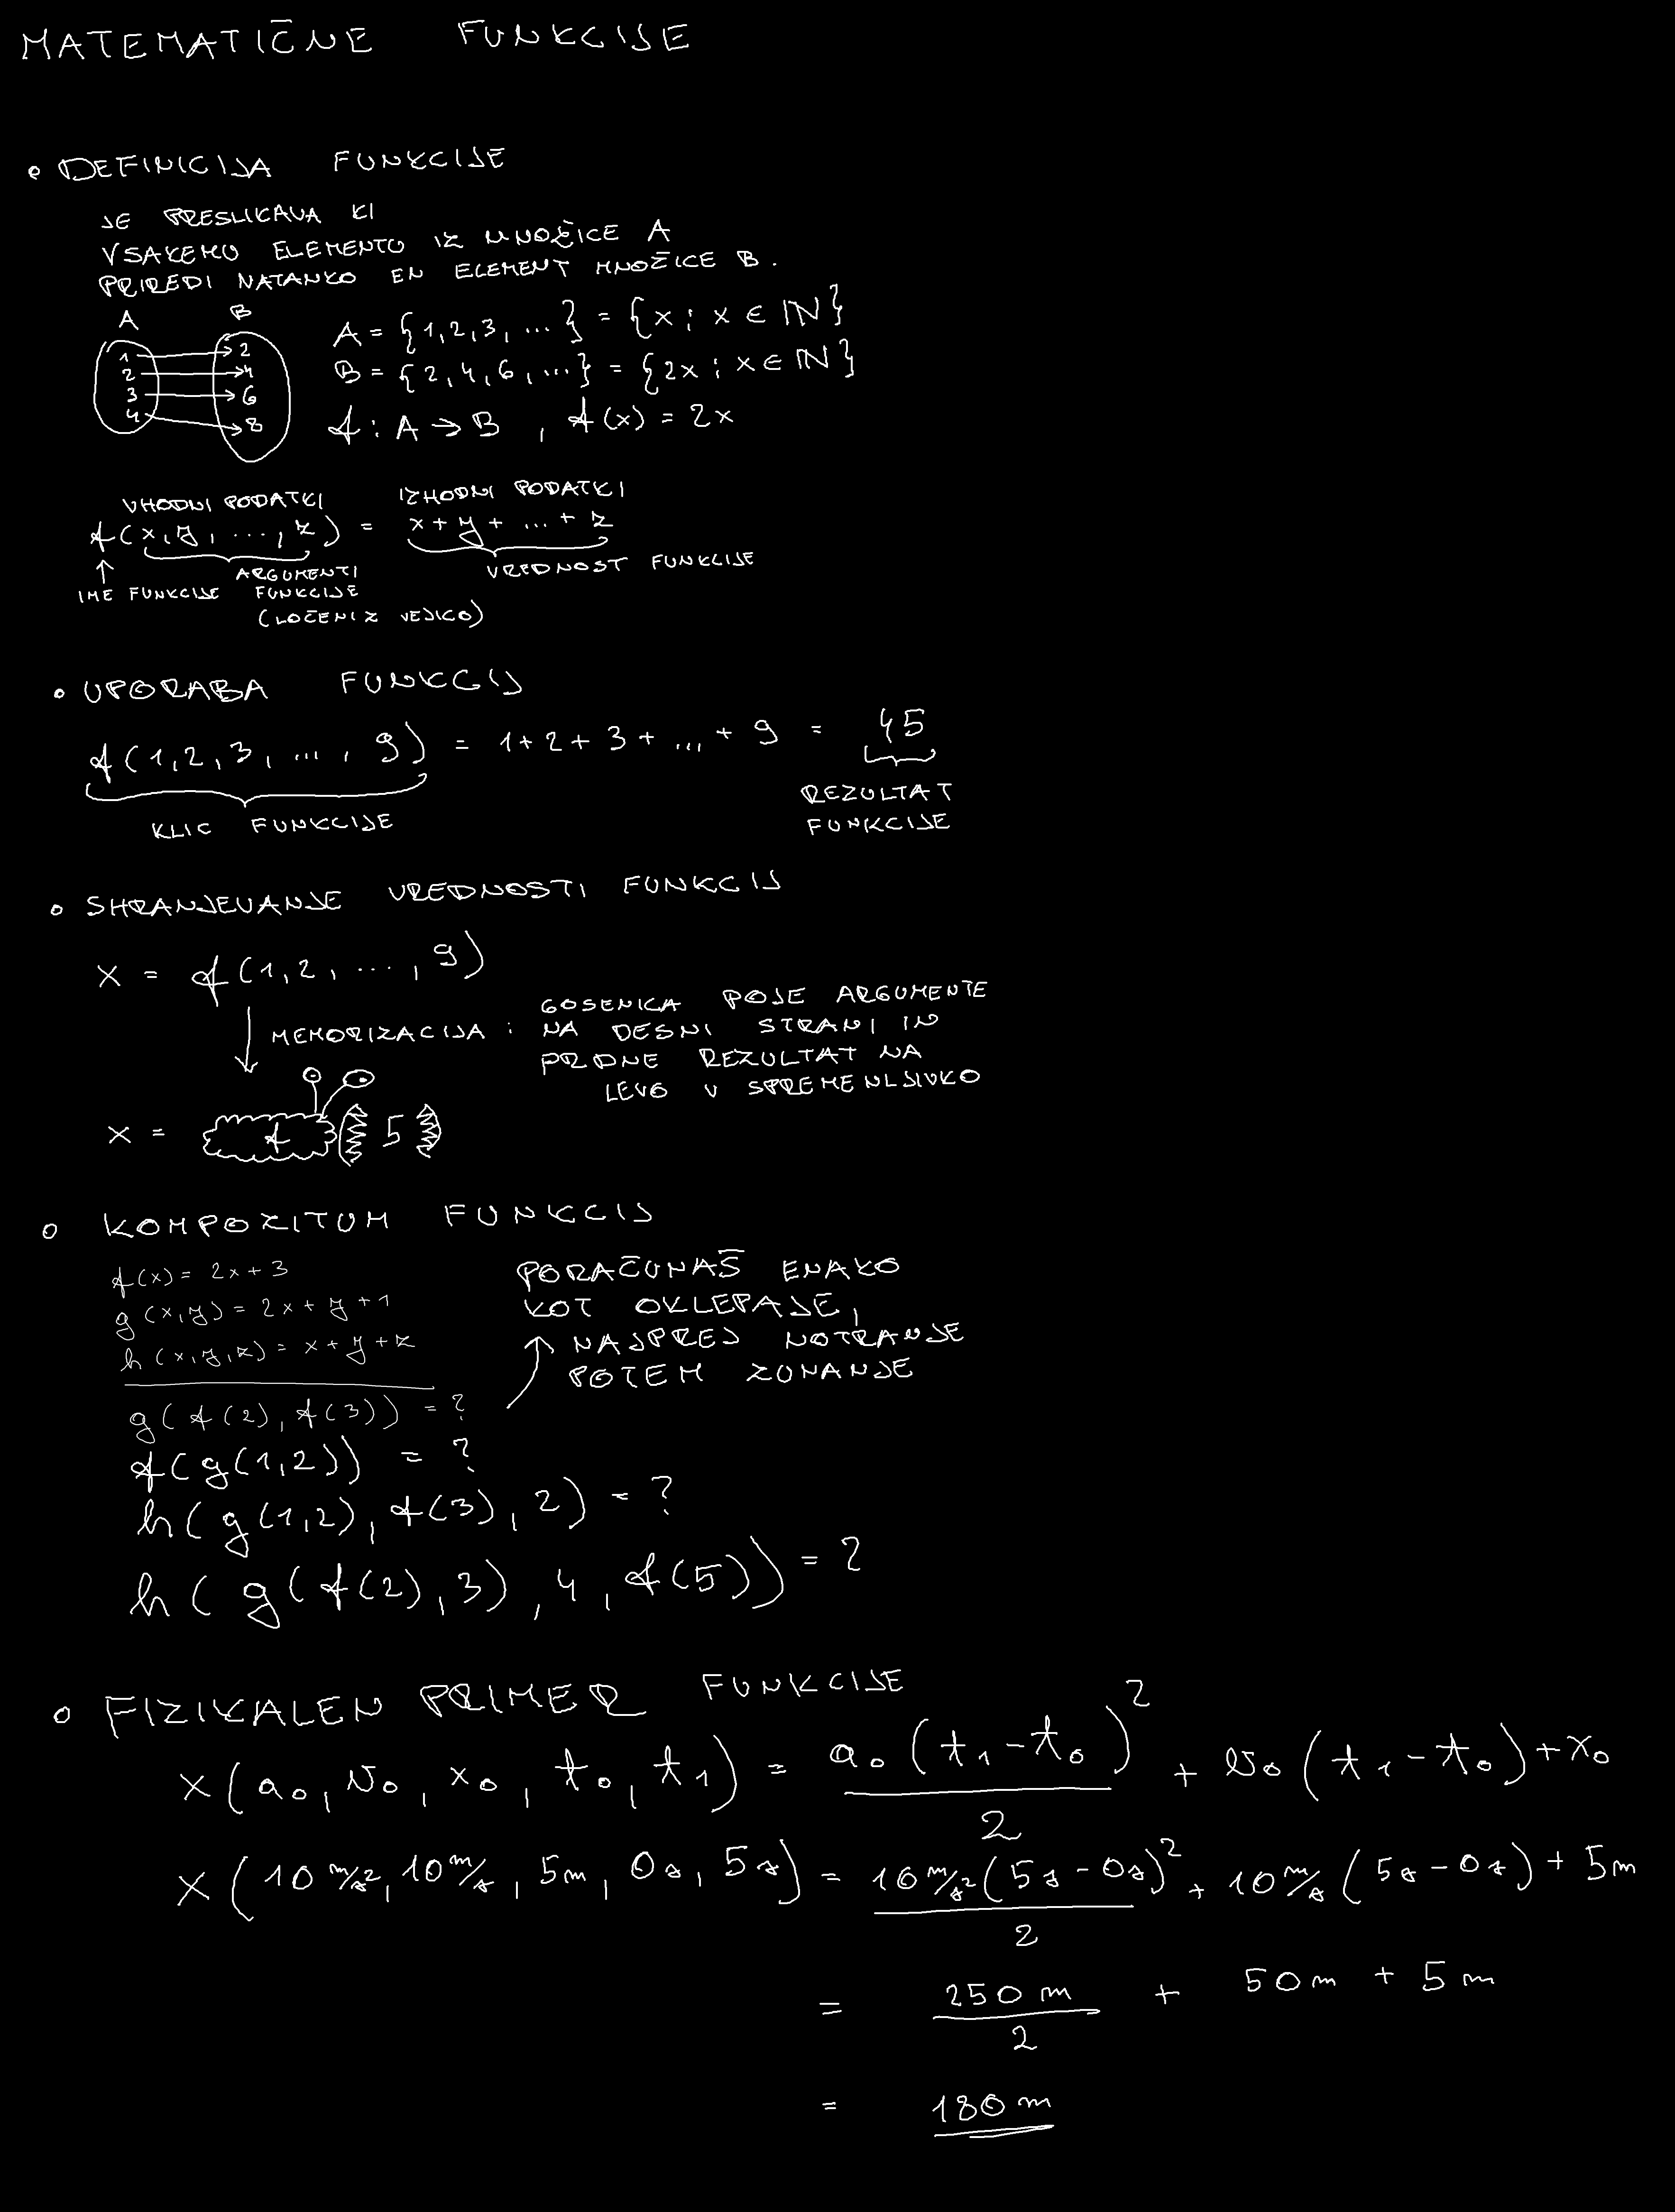 MATEMATIČNE FUNKCIJE
• DEFINICIJA FUNKCIJE
JE PRESLIKAVA KI
VSAKEMU ELEMENTO IZ MNOŽICE A
PRIREDI NATANKO EN ELEMENT MNOŽICE B.
A B
1 → 2
2 → 4
3 → 6
4 → 8
A = {1,2,3, ...} = {x ; x ∈ ℕ}
B = {2,4,6, ...} = {2x ; x ∈ ℕ}
f : A → B , f(x) = 2x
VHODNI PODATKI IZHODNI PODATKI
f(x,y, ..., z) = x + y + ... + z
↑ ARGUMENTI VREDNOST FUNKCIJE
IME FUNKCIJE FUNKCIJE
(LOČENI Z VEJICO)
• UPORABA FUNKCIJ
f(1,2,3, ..., 9) = 1 + 2 + 3 + ... + 9 = 45
KLIC FUNKCIJE
REZULTAT
FUNKCIJE
• SHRANJEVANJE VREDNOSTI FUNKCIJ
x = f(1,2, ..., 9)
MEMORIZACIJA : GOSENICA POJE ARGUMENTE
NA DESNI STRANI IN
PRDNE REZULTAT NA
LEVO V SPREMENLJIVKO
x = f ( 5 )
• KOMPOZITUM FUNKCIJ
f(x) = 2x + 3
g(x,y) = 2x + y + 1
h(x,y,z) = x + y + z
PORAČUNAŠ ENAKO
KOT OKLEPAJE,
NAJPREJ NOTRANJE
POTEM ZUNANJE
g(f(2), f(3)) = ?
f(g(1,2)) = ?
h(g(1,2), f(3), 2) = ?
h(g(f(2), 3), 4, f(5)) = ?
• FIZIKALEN PRIMER FUNKCIJE
x(a₀, v₀, x₀, t₀, t₁) = a₀(t₁ - t₀)² / 2 + v₀(t₁ - t₀) + x₀
x(10 m/s², 10 m/s, 5m, 0s, 5s) = 10 m/s² (5s - 0s)² / 2 + 10 m/s (5s - 0s) + 5m
= 250 m / 2 + 50 m + 5 m
= 180 m